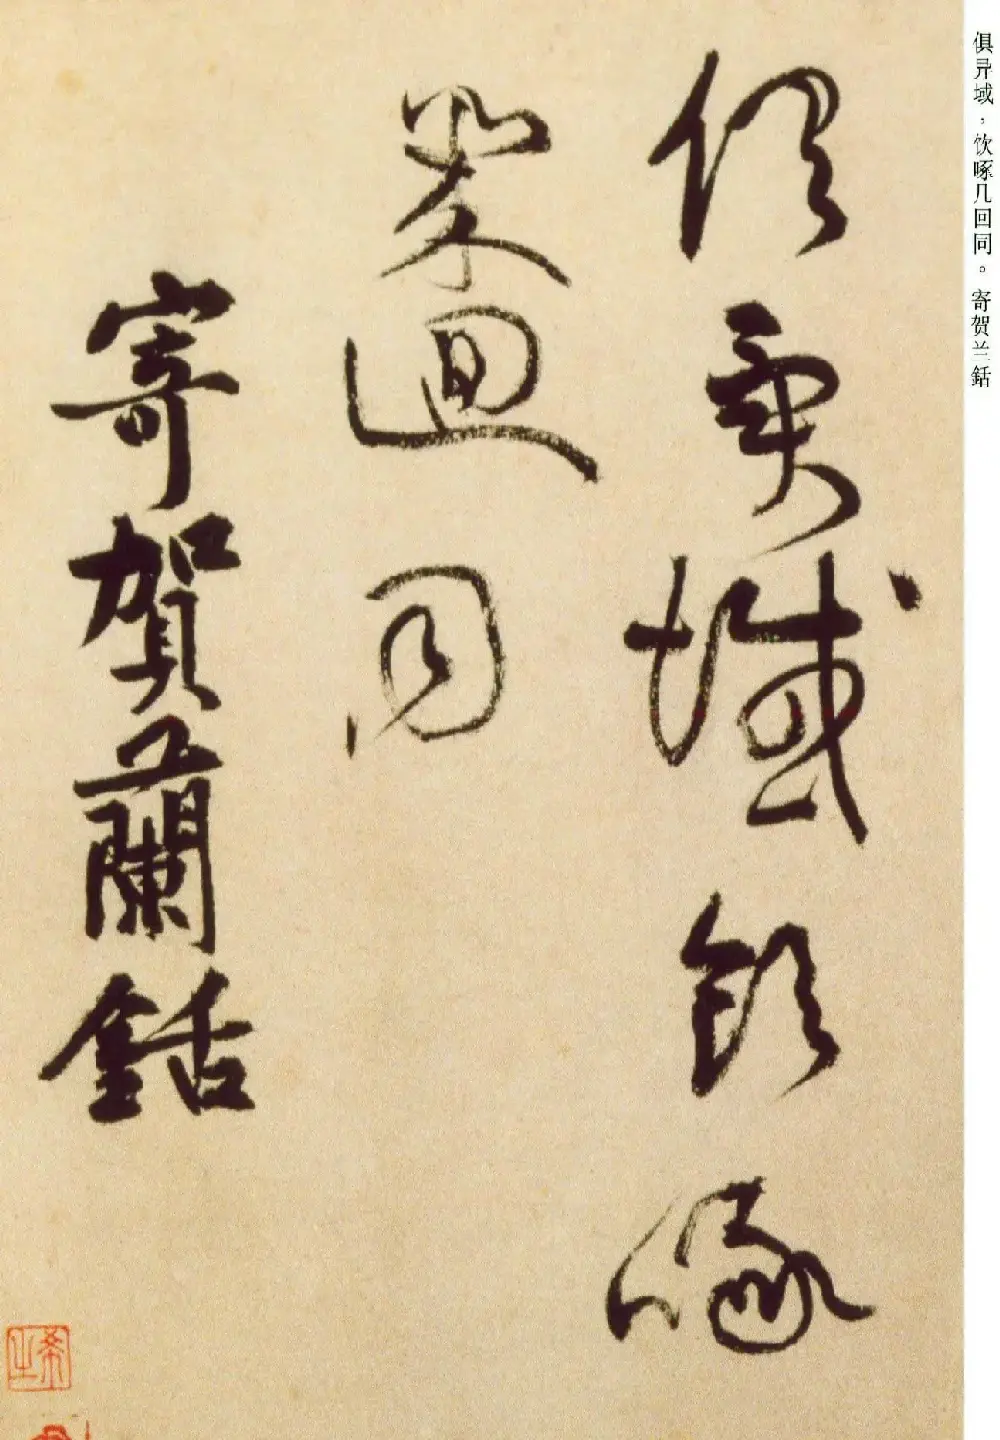 俱异域，饮啄几回同。寄贺兰銛
俱異域飲啄
幾迴同
寄賀蘭銛
希之